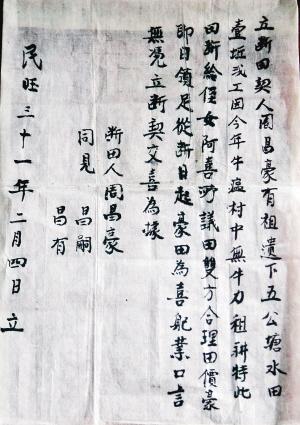 立断田契人周昌豪有祖遗下五公塘水田
壹坵弍工因今年牛瘟村中無牛力租耕特此
田断给侄女阿喜所議田雙方合理田價豪
即日領足從断日起豪田為喜耽業口言
無凭立断契交喜為據
断田人周昌豪
同見 昌嗣
昌有
民国三十一年二月四日立